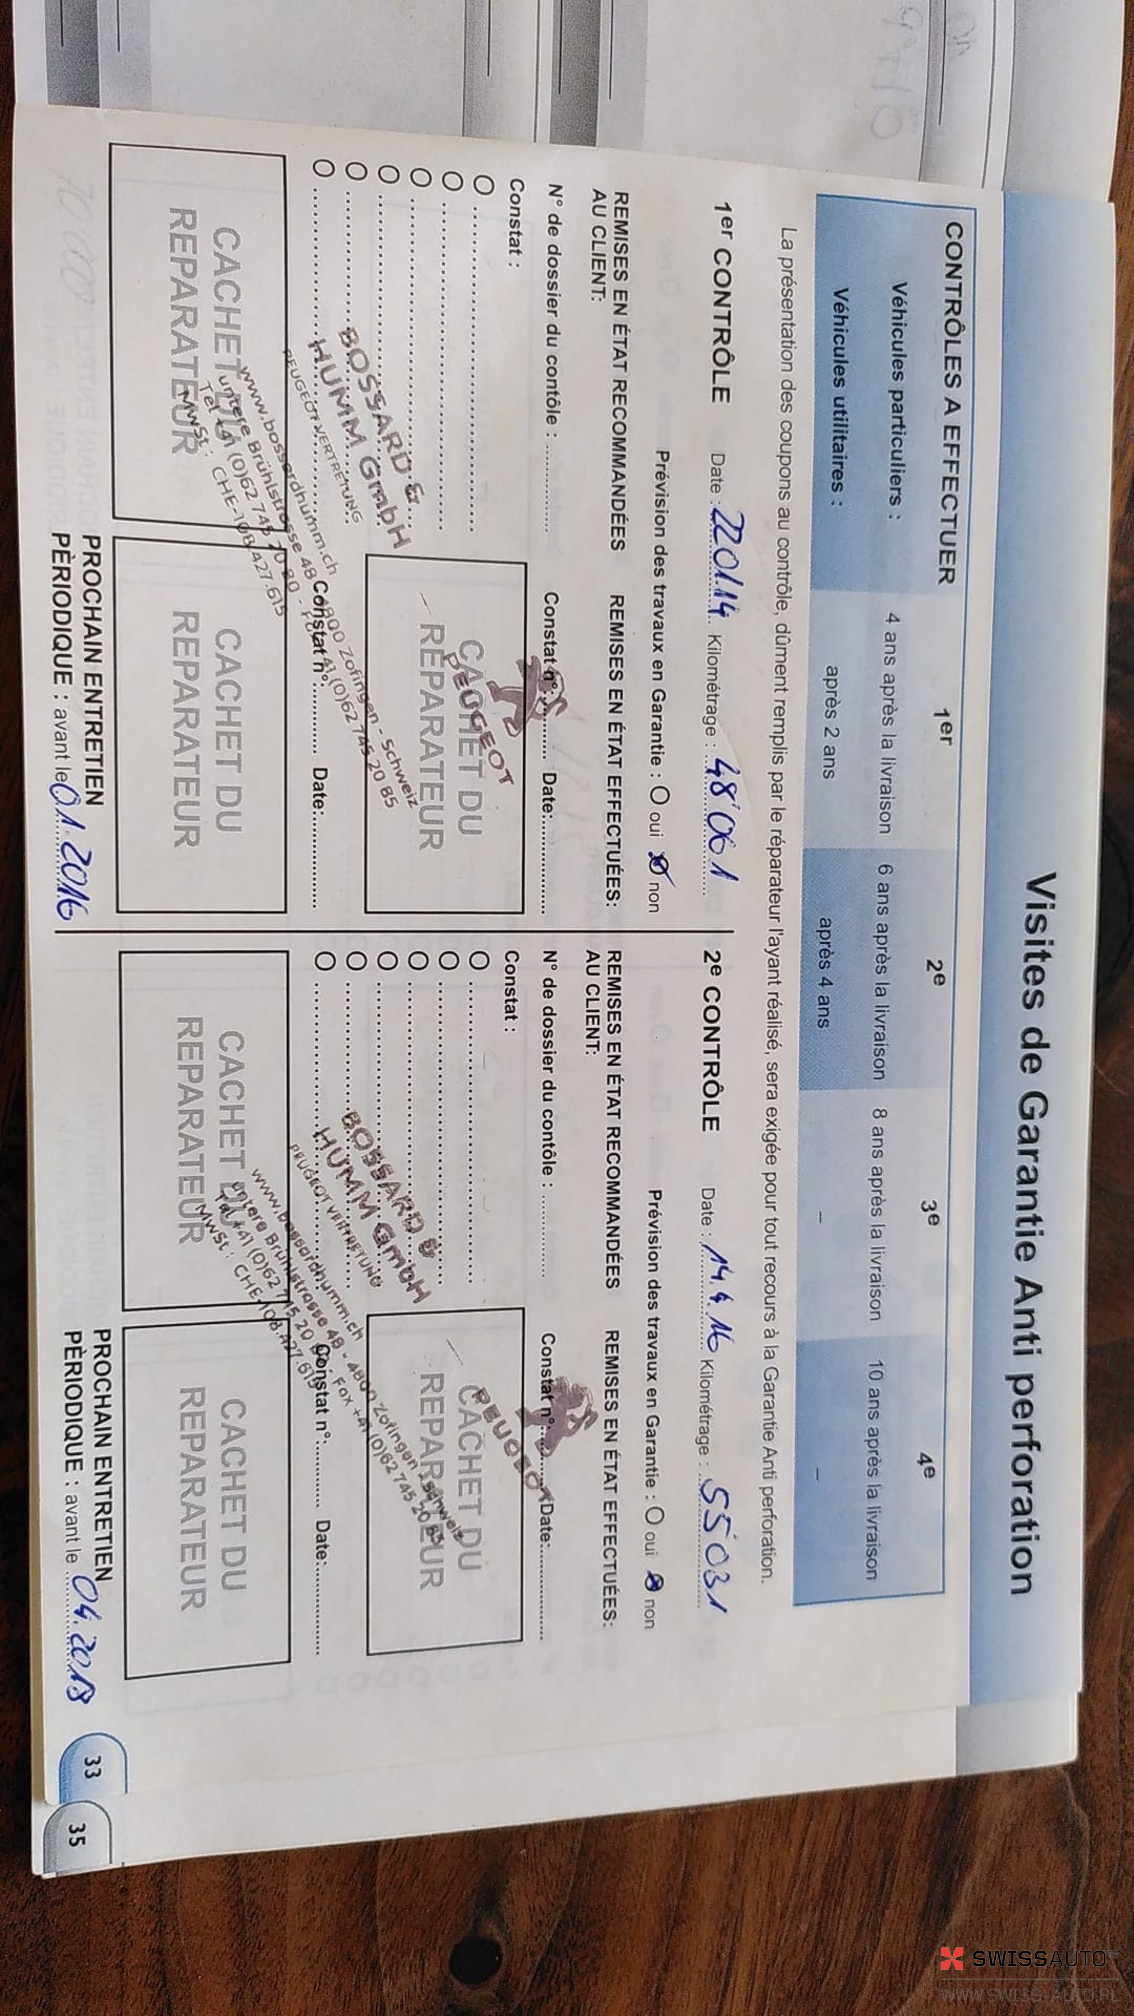 Visites de Garantie Anti perforation
CONTRÔLES A EFFECTUER 1er 2e 3e 4e
Véhicules particuliers : 4 ans après la livraison 6 ans après la livraison 8 ans après la livraison 10 ans après la livraison
Véhicules utilitaires : après 2 ans après 4 ans – –
La présentation des coupons au contrôle, dûment remplis par le réparateur l'ayant réalisé, sera exigée pour tout recours à la Garantie Anti perforation.
1er CONTRÔLE Date : 22.01.14 Kilométrage : 48'061
Prévision des travaux en Garantie : oui non
REMISES EN ÉTAT RECOMMANDÉES
AU CLIENT:
REMISES EN ÉTAT EFFECTUÉES:
N° de dossier du contôle :
Constat n°: Date:
Constat :
PEUGEOT
CACHET DU
REPARATEUR
BOSSARD &
HUMM GmbH
PEUGEOT VERTRETUNG
www.bossardhumm.ch
untere Brühlstrasse 48 - 4800 Zofingen - Schweiz
Tel +41 (0)62 745 20 80 - Fax +41 (0)62 745 20 85
MWSt : CHE-108.427.615
Constat n°: Date:
CACHET DU
REPARATEUR
CACHET DU
REPARATEUR
PROCHAIN ENTRETIEN
PÈRIODIQUE : avant le 01.2016
2e CONTRÔLE Date : 14.4.16 Kilométrage : 55'031
Prévision des travaux en Garantie : oui non
REMISES EN ÉTAT RECOMMANDÉES
AU CLIENT:
REMISES EN ÉTAT EFFECTUÉES:
N° de dossier du contôle :
Constat n°: Date:
Constat :
PEUGEOT
CACHET DU
REPARATEUR
BOSSARD &
HUMM GmbH
PEUGEOT VERTRETUNG
www.bossardhumm.ch
untere Brühlstrasse 48 - 4800 Zofingen - Schweiz
Tel +41 (0)62 745 20 80 - Fax +41 (0)62 745 20 85
MWSt : CHE-108.427.615
Constat n°: Date:
CACHET DU
REPARATEUR
CACHET DU
REPARATEUR
PROCHAIN ENTRETIEN
PÈRIODIQUE : avant le 04.2018
33
35
SWISSAUTO
WWW.SWISS-AUTO.PL